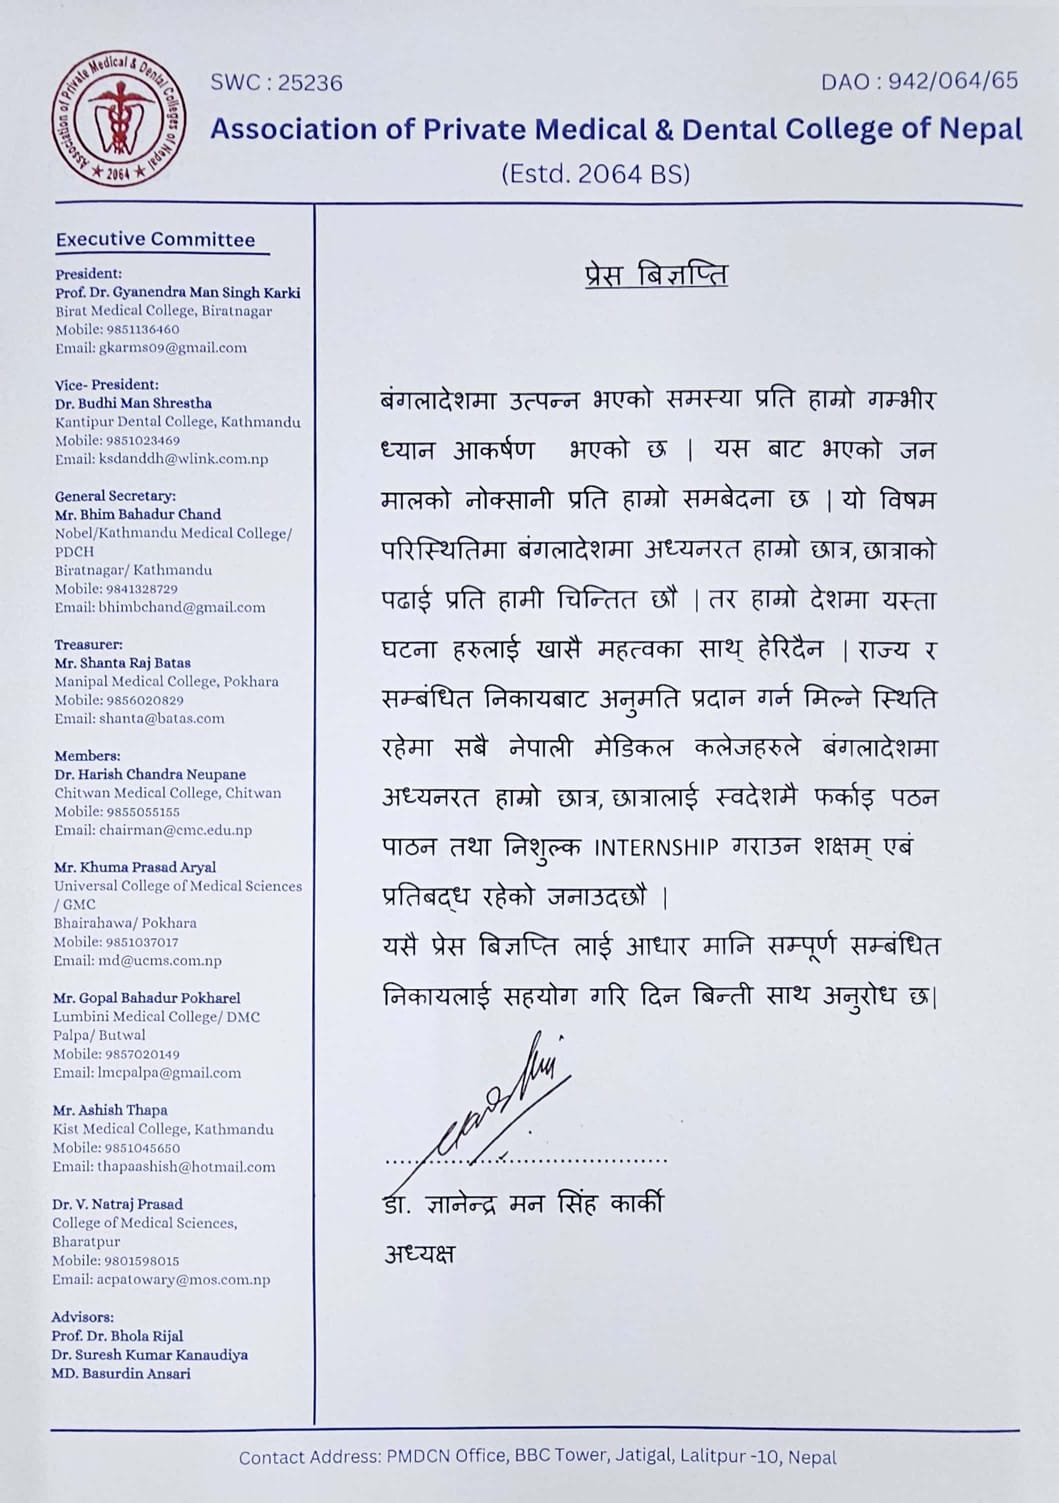 Association of Private Medical & Dental Colleges of Nepal
★ 2064 ★
SWC : 25236
DAO : 942/064/65
Association of Private Medical & Dental College of Nepal
(Estd. 2064 BS)
Executive Committee
President:
Prof. Dr. Gyanendra Man Singh Karki
Birat Medical College, Biratnagar
Mobile: 9851136460
Email: gkarms09@gmail.com
Vice- President:
Dr. Budhi Man Shrestha
Kantipur Dental College, Kathmandu
Mobile: 9851023469
Email: ksdanddh@wlink.com.np
General Secretary:
Mr. Bhim Bahadur Chand
Nobel/Kathmandu Medical College/
PDCH
Biratnagar/ Kathmandu
Mobile: 9841328729
Email: bhimbchand@gmail.com
Treasurer:
Mr. Shanta Raj Batas
Manipal Medical College, Pokhara
Mobile: 9856020829
Email: shanta@batas.com
Members:
Dr. Harish Chandra Neupane
Chitwan Medical College, Chitwan
Mobile: 9855055155
Email: chairman@cmc.edu.np
Mr. Khuma Prasad Aryal
Universal College of Medical Sciences
/ GMC
Bhairahawa/ Pokhara
Mobile: 9851037017
Email: md@ucms.com.np
Mr. Gopal Bahadur Pokharel
Lumbini Medical College/ DMC
Palpa/ Butwal
Mobile: 9857020149
Email: lmcpalpa@gmail.com
Mr. Ashish Thapa
Kist Medical College, Kathmandu
Mobile: 9851045650
Email: thapaashish@hotmail.com
Dr. V. Natraj Prasad
College of Medical Sciences,
Bharatpur
Mobile: 9801598015
Email: acpatowary@mos.com.np
Advisors:
Prof. Dr. Bhola Rijal
Dr. Suresh Kumar Kanaudiya
MD. Basurdin Ansari
प्रेस बिज्ञप्ति
बंगलादेशमा उत्पन्न भएको समस्या प्रति हाम्रो गम्भीर
ध्यान आकर्षण भएको छ | यस बाट भएको जन
मालको नोक्सानी प्रति हाम्रो समबेदना छ | यो विषम
परिस्थितिमा बंगलादेशमा अध्यनरत हाम्रो छात्र, छात्राको
पढाई प्रति हामी चिन्तित छौ | तर हाम्रो देशमा यस्ता
घटना हरुलाई खासै महत्वका साथ् हेरिदैन | राज्य र
सम्बंधित निकायबाट अनुमति प्रदान गर्न मिल्ने स्थिति
रहेमा सबै नेपाली मेडिकल कलेजहरुले बंगलादेशमा
अध्यनरत हाम्रो छात्र, छात्रालाई स्वदेशमै फर्काइ पठन
पाठन तथा निशुल्क INTERNSHIP गराउन शक्षम् एबं
प्रतिबद्ध रहेको जनाउदछौ |
यसै प्रेस बिज्ञप्ति लाई आधार मानि सम्पूर्ण सम्बंधित
निकायलाई सहयोग गरि दिन बिन्ती साथ अनुरोध छ|
डा. ज्ञानेन्द्र मन सिंह कार्की
अध्यक्ष
Contact Address: PMDCN Office, BBC Tower, Jatigal, Lalitpur -10, Nepal